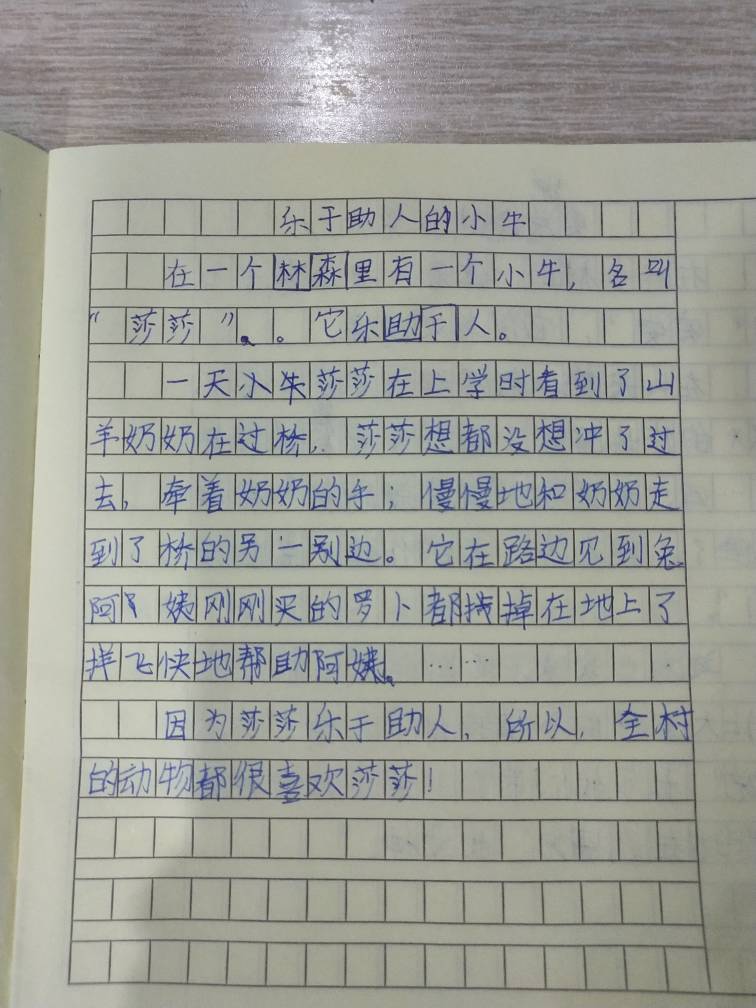 乐于助人的小牛
在一个林森里有一个小牛，名叫
“莎莎”。。它乐助于人。
一天小牛莎莎在上学时看到了山
羊奶奶在过桥，莎莎想都没想冲了过
去，牵着奶奶的手；慢慢地和奶奶走
到了桥的另一别边。它在路边见到兔
阿 姨刚刚买的罗卜都掉在地上了
样飞快地帮助阿姨。……
因为莎莎乐于助人，所以，全村
的动物都很喜欢莎莎！